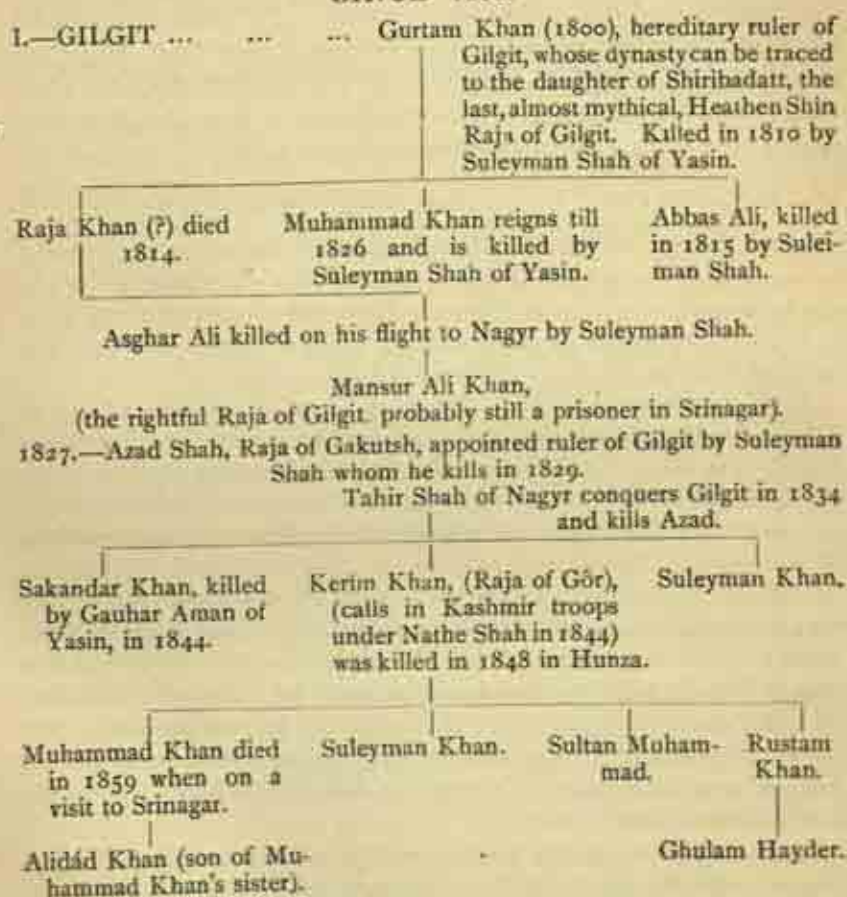 I.—GILGIT ... ... ... Gurtam Khan (1800), hereditary ruler of
Gilgit, whose dynasty can be traced
to the daughter of Shiribadatt, the
last, almost mythical, Heathen Shin
Raja of Gilgit. Killed in 1810 by
Suleyman Shah of Yasin.
Raja Khan (?) died
1814.
Muhammad Khan reigns till
1826 and is killed by
Suleyman Shah of Yasin.
Abbas Ali, killed
in 1815 by Sulei-
man Shah.
Asghar Ali killed on his flight to Nagyr by Suleyman Shah.
Mansur Ali Khan,
(the rightful Raja of Gilgit probably still a prisoner in Srinagar).
1827.—Azad Shah, Raja of Gakutsh, appointed ruler of Gilgit by Suleyman
Shah whom he kills in 1829.
Tahir Shah of Nagyr conquers Gilgit in 1834
and kills Azad.
Sakandar Khan, killed
by Gauhar Aman of
Yasin, in 1844.
Kerim Khan, (Raja of Gôr),
(calls in Kashmir troops
under Nathe Shah in 1844)
was killed in 1848 in Hunza.
Suleyman Khan.
Muhammad Khan died
in 1859 when on a
visit to Srinagar.
Suleyman Khan.
Sultan Muham-
mad.
Rustam
Khan.
Alidád Khan (son of Mu-
hammad Khan's sister).
Ghulam Hayder.